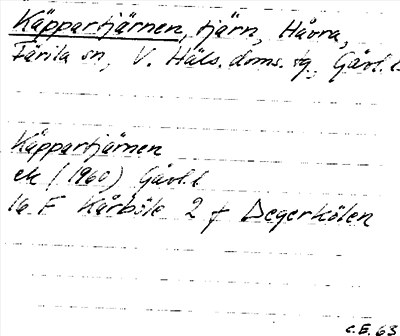 Käppartjärnen, tjärn, Håvra,
Färila sn, V. Häls. doms. sg, Gävl. l.
Käppartjärnen
ek (1960) Gävl. l
16 F Kårböle 2 f Degerkölen
C.E. 63